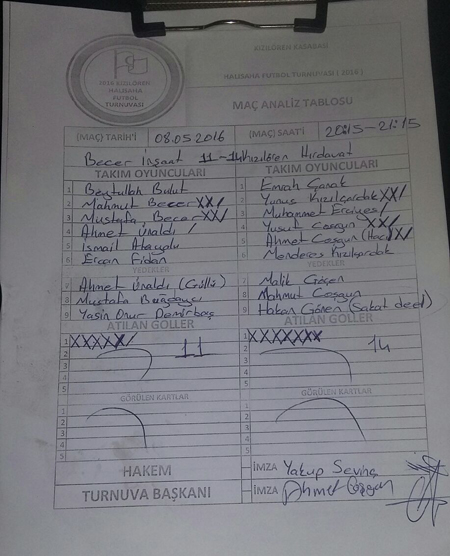 KIZILÖREN KASABASI
HALISAHA FUTBOL TURNUVASI ( 2016 )
2016 KIZILÖREN
HALISAHA
FUTBOL
TURNUVASI
MAÇ ANALİZ TABLOSU
(MAÇ) TARİH'İ 08.05.2016 (MAÇ) SAAT'İ 20:15-21:15
Becer İnşaat 11-14 Kızılören Hırdavat
TAKIM OYUNCULARI TAKIM OYUNCULARI
1 Beytullah Bulut 1 Emrah Çanak
2 Mahmut Becer XX/ 2 Yunus Kızılçardak XX/
3 Mustafa Becer XX/ 3 Muhammet Erciyes/
4 Ahmet Ünaldı / 4 Yusuf Coşgun XX/
5 İsmail 5 Ahmet Coşgun (Hacı) X/
6 Ercan Fidan 6 Menderes Kızılçardak
YEDEKLER YEDEKLER
7 Ahmet Ünaldı (Güllü) 7 Malik Göçen
8 Mustafa 8 Mahmut Coşgun
9 Yasin Onur Demirbaş 9 Hakan Gören (Sakat dedi)
ATILAN GOLLER ATILAN GOLLER
1 XXXXX/ 1 XXXXXXX
2 11 2 14
3 3
4 4
5 5
GÖRÜLEN KARTLAR GÖRÜLEN KARTLAR
1 1
2 2
3 3
4 4
5 5
HAKEM İMZA Yakup Sevinç
TURNUVA BAŞKANI İMZA Ahmet Coşgun